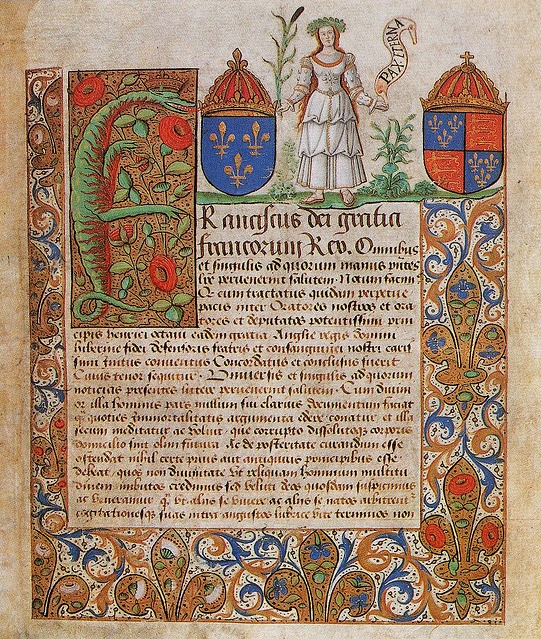 PAX ETERNA
Franciscus dei gratia
francorum Rex. Omnibus
et singulis ad quorum manus presentes
lre pervenerint salutem. Notum facimus
Q cum tractatus quidam perpetue
pacis inter Oratores nostros et ora
tores et deputatos potentissimi prin
cipis henrici octavi eadem gratia Anglie regis domini
hibernie fidei defensoris fratris et consanguinei nostri cari
simi initus conventus Concordatus et conclusus fuerit
Cuius tenor sequitur. Universis et singulis ad quorum
noticias presentes littere pervenerint salutem. Cum divini
or illa hominis pars nullum sui clarius documentum faciat
q quoties immortalitatis argumenta edere conatur et illa
secum meditatur ac volvit que corrupto dissolutoq corporis
domicilio sint olim futura. Ac de posteritate curandum esse
ostendat nihil certe prius aut antiquius principibus esse
debeat, quos non divinitate ut reliquam hominum multitu
dinem imbutos credimus sed veluti deos quosdam suspicimus
ac veneramur q ut aliis se vivere ac aliis se natos arbitrent
cogitationesq suas intra angustos lubrice vite terminos non